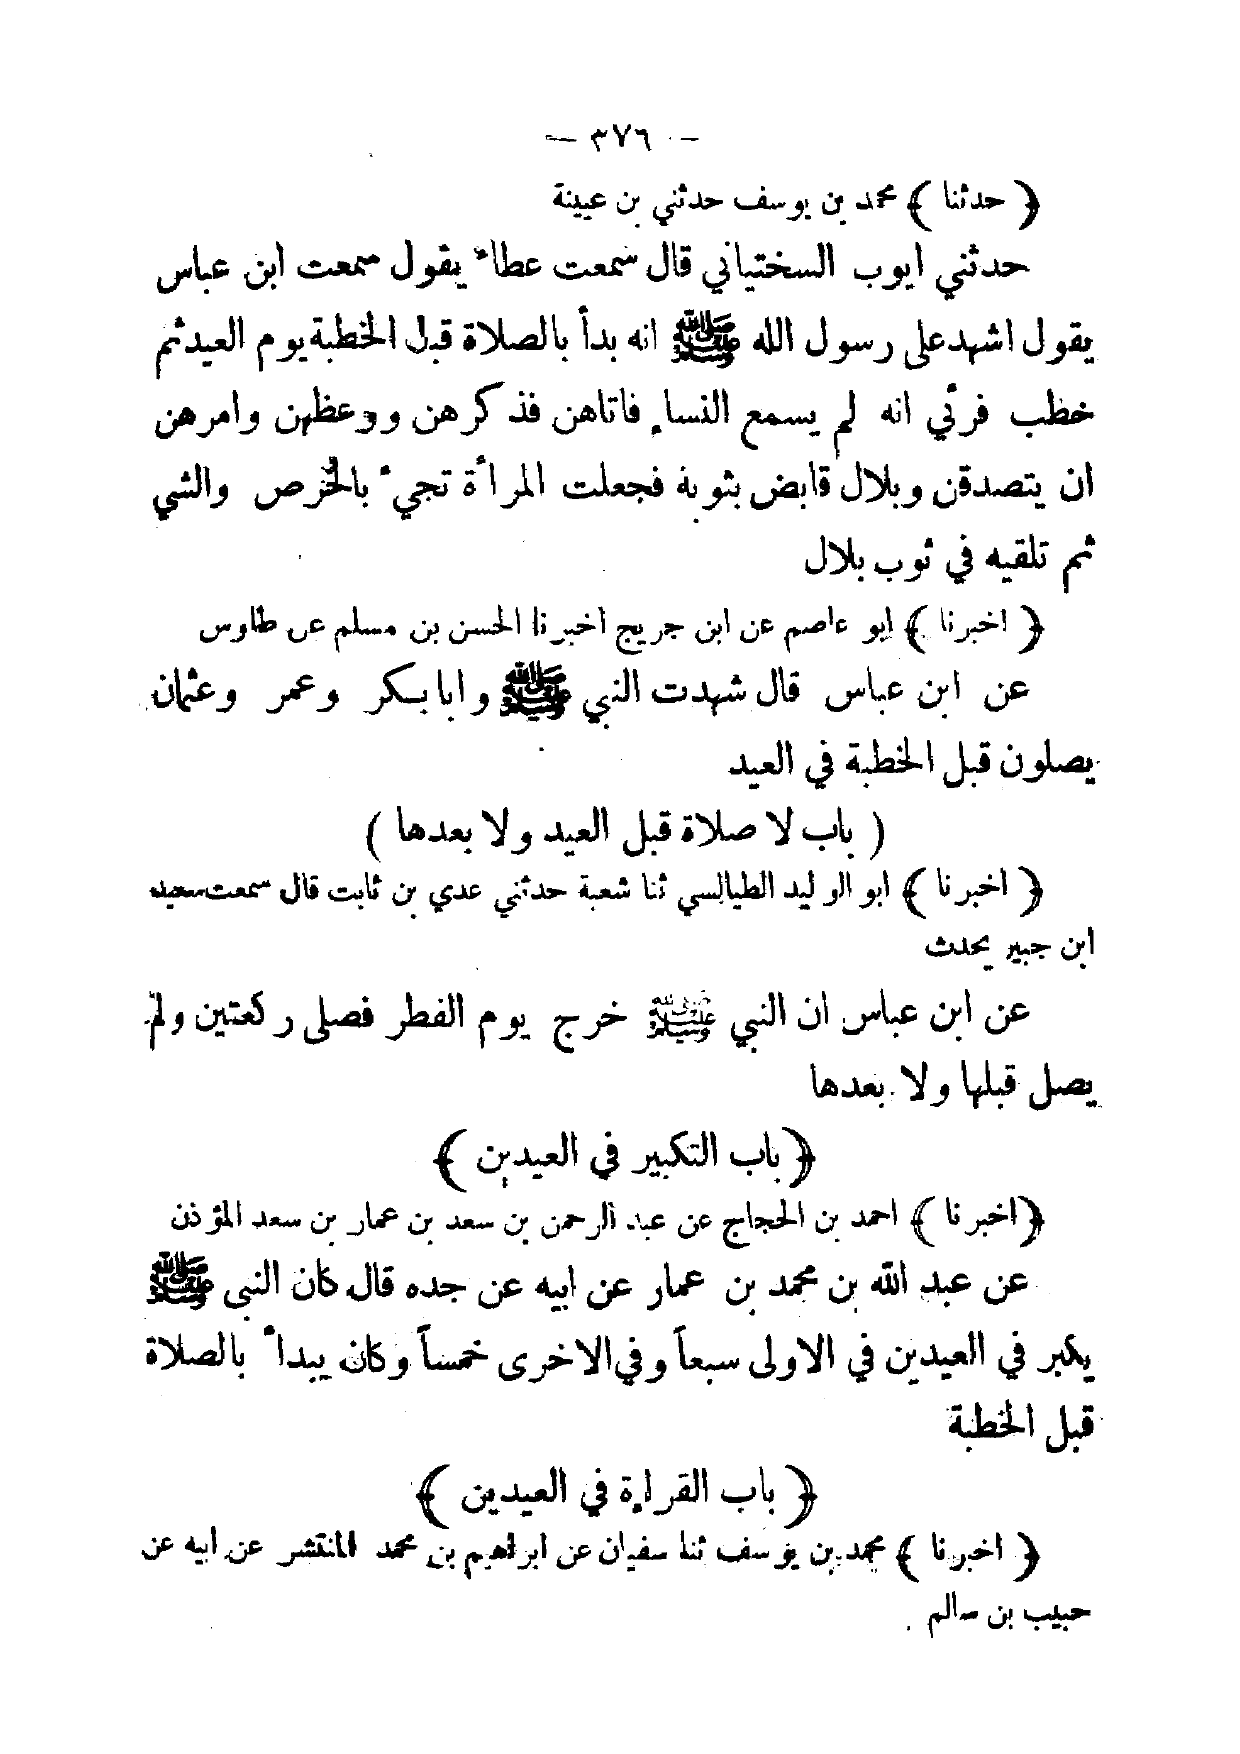 — ٣٧٦ —
﴿ حدثنا ﴾ محمد بن يوسف حدثني بن عيينة
حدثني ايوب السختياني قال سمعت عطاء يقول سمعت ابن عباس
يقول اشهد على رسول الله ﷺ انه بدأ بالصلاة قبل الخطبة يوم العيد ثم
خطب فرئي انه لم يسمع النساء فاتاهن فذكرهن ووعظهن وامرهن
ان يتصدقن وبلال قابض بثوبه فجعلت المرأة تجيء بالخُرص والشي
ثم تلقيه في ثوب بلال
﴿ اخبرنا ﴾ ابو عاصم عن ابن جريج اخبرنا الحسن بن مسلم عن طاوس
عن ابن عباس قال شهدت النبي ﷺ وابا بكر وعمر وعثمان
يصلون قبل الخطبة في العيد
( باب لا صلاة قبل العيد ولا بعدها )
﴿ اخبرنا ﴾ ابو الوليد الطيالسي ثنا شعبة حدثني عدي بن ثابت قال سمعت سعيد
ابن جبير يحدث
عن ابن عباس ان النبي ﷺ خرج يوم الفطر فصلى ركعتين ولم
يصل قبلها ولا بعدها
﴿ باب التكبير في العيدين ﴾
﴿ اخبرنا ﴾ احمد بن الحجاج عن عبد الرحمن بن سعد بن عمار بن سعد المؤذن
عن عبد الله بن محمد بن عمار عن ابيه عن جده قال كان النبي ﷺ
يكبر في العيدين في الاولى سبعاً وفي الاخرى خمساً وكان يبدأ بالصلاة
قبل الخطبة
﴿ باب القراءة في العيدين ﴾
﴿ اخبرنا ﴾ محمد بن يوسف ثنا سفيان عن ابراهيم بن محمد المنتشر عن ابيه عن
حبيب بن سالم